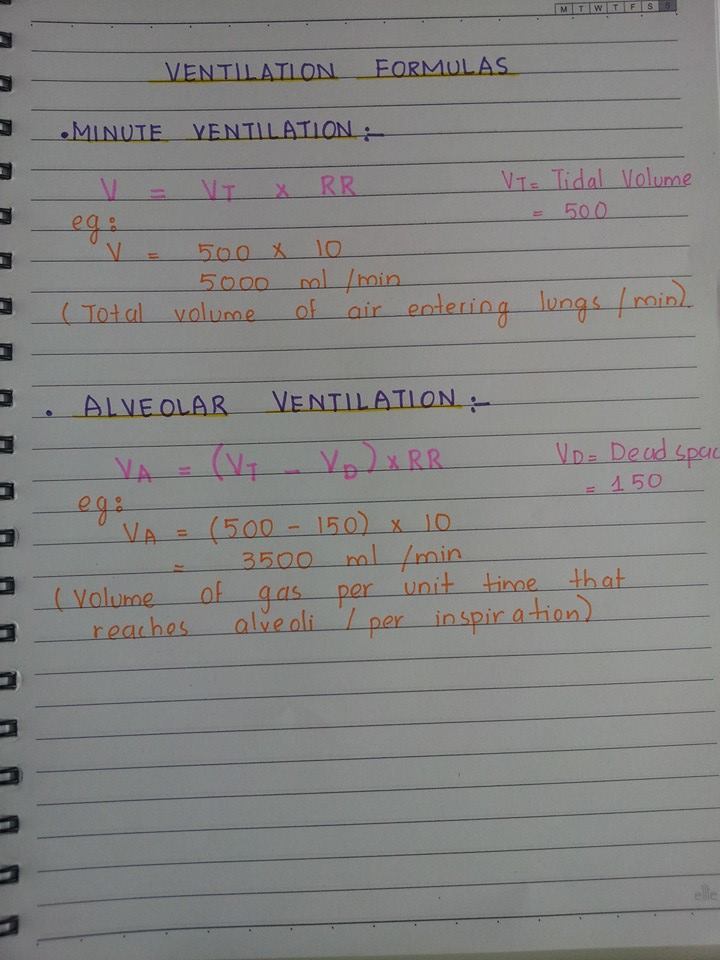 M T W T F S S
VENTILATION FORMULAS
•MINUTE VENTILATION:-
V = VT x RR
VT= Tidal Volume
= 500
eg:
V = 500 x 10
5000 ml /min
(Total volume of air entering lungs /min)
• ALVEOLAR VENTILATION:-
VA = (VT - VD) x RR
VD= Dead spac
= 150
eg:
VA = (500 - 150) x 10
= 3500 ml /min
(Volume of gas per unit time that
reaches alveoli / per inspiration)
elle